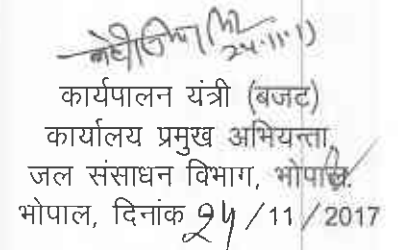 24.11.17
कार्यपालन यंत्री (बजट)
कार्यालय प्रमुख अभियन्ता,
जल संसाधन विभाग, भोपाल.
भोपाल, दिनांक 24/11/2017